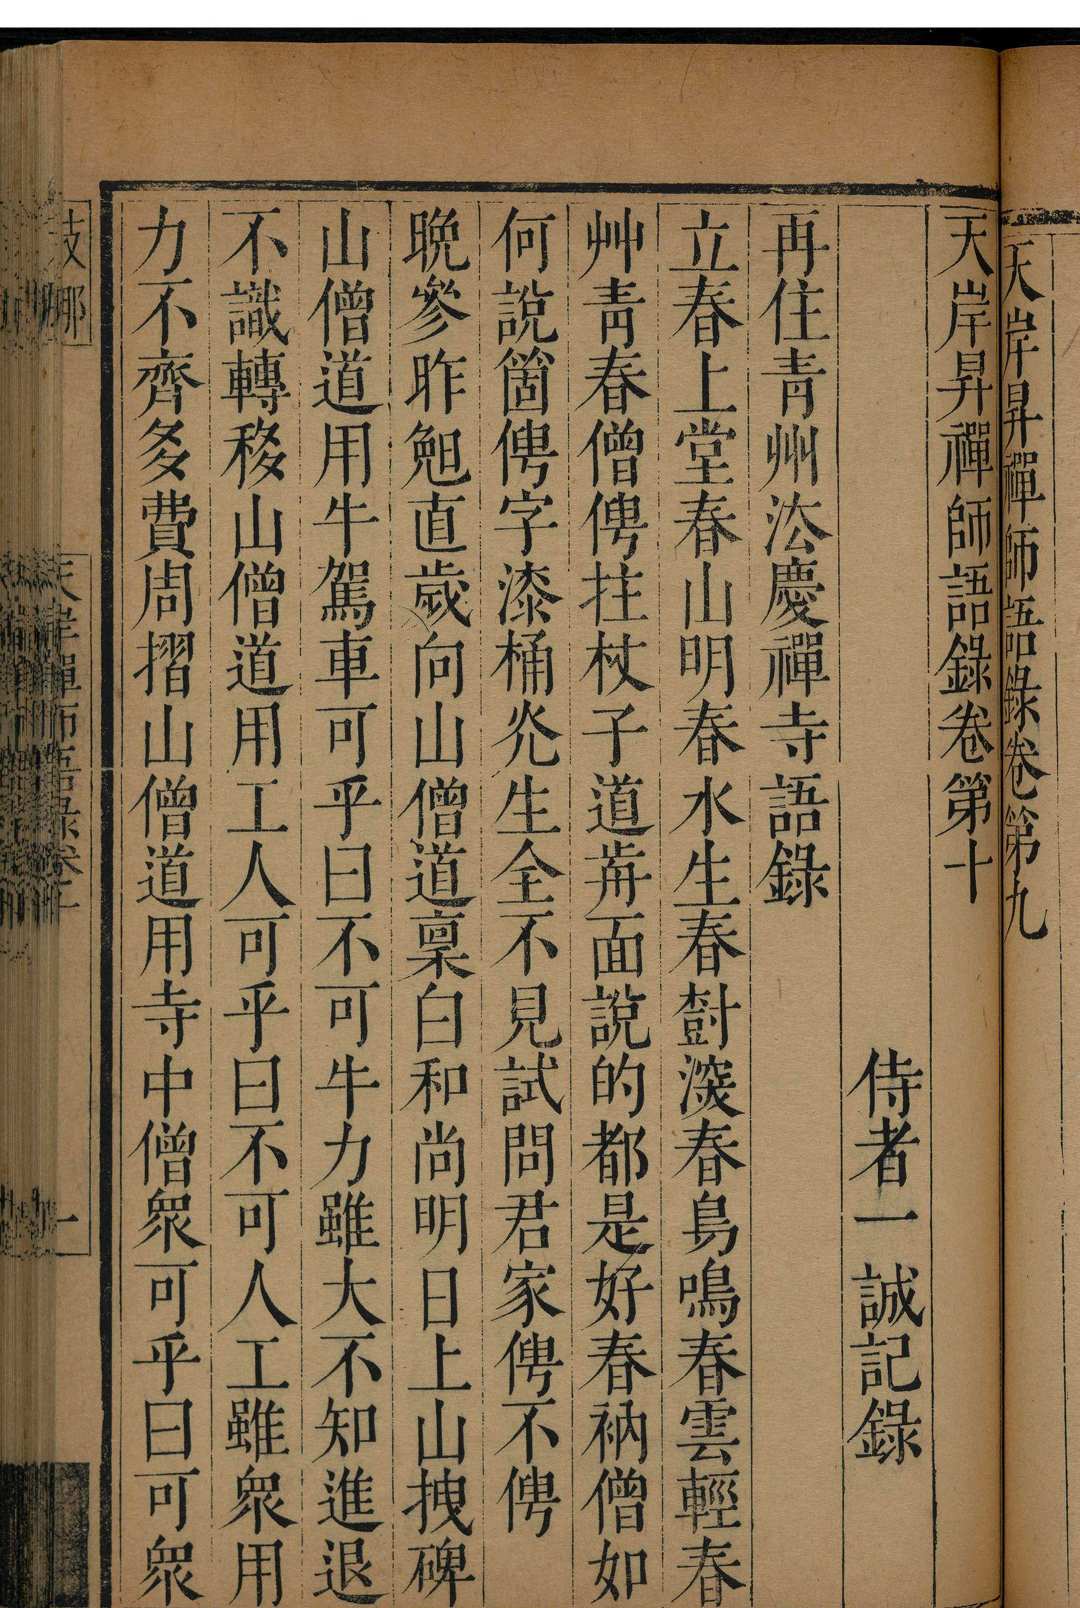 天岸昇禪師語錄卷第九
天岸昇禪師語錄卷第十
侍者一誠記錄
再住青州法慶禪寺語錄
立春上堂春山明春水生春對深春鳥鳴春雲輕春
艸青春僧俜拄杖子道觜面說的都是好春衲僧如
何說箇俜字漆桶灮生全不見試問君家俜不俜
晚參昨𠒎直歲向山僧道稟白和尚明日上山拽碑
山僧道用牛駕車可乎曰不可牛力雖大不知進退
不識轉移山僧道用工人可乎曰不可人工雖眾用
力不齊多費周摺山僧道用寺中僧眾可乎曰可眾
天岸禪師語錄卷十
一